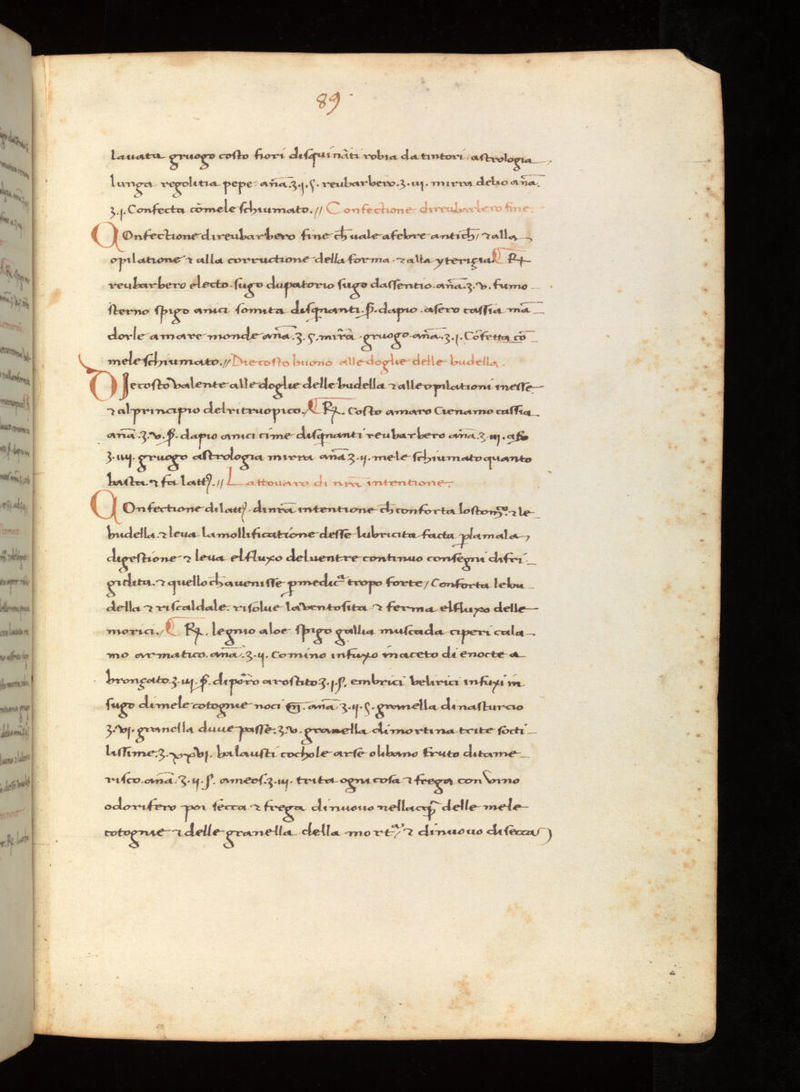 89
lauata gruogo costo fiori disquināti robia da tintori astrologia
lunga regolitia pepe anā.ʒ.ij.ϛ. reubarbero.ʒ.iij. mirra delio anā.
ʒ.j. Confecta cō mele schiumato.// Confectione direubarbero fine.
COnfectione direubarbero fine ch uale afebre antich / ⁊ alla
opilatione ⁊ alla corructione della forma ⁊ alla yteritia. ℞
reubarbero electo. sugo dupatorio sugo dassentio anā.ʒ.v. fumo
sterno spigo anici somita disqnanti. ꝑ. dapio. asero cassia mā
dorle amare monde anā.ʒ.ϛ. mirā gruogo anā.ʒ.j. Cōfetta cō
mele schiumato.// Diecosto buono alle doglie delle budella.
DIecosto valente alle doglie delle budella ⁊ alle opilationi messe
⁊ al principio del ritruopico. ℞. Costo amaro Cienamo cassia
anā.ʒ.v. ꝑ. dapio anici cime disqnanti reubarbero anā.ʒ.iij.
ʒ.iiij. gruogo astrologia mirra anā ʒ.ij. mele schiumato quanto
basta ⁊ fa latt.// Lattouaro di nrā intentione.
COnfectione di latt. di nrā intentione ch conforta lo stom. ⁊ le
budella. ⁊ leua la mollificatione desse lubricita facta p la mala
digestione ⁊ leua el fluxo del uentre continuo con segni di fri
gidita. ⁊ quello ch auenisse p medic.ª tropo forte / Conforta lebu
della ⁊ riscaldale. risolue la ventosita ⁊ ferma el fluxo delle
morici. ℞. legnio aloe spigo gallia muscada ciperi cala
mo armatico. anā.ʒ.ij. Comino infuxo inaceto di enocte a
brongato.ʒ.iij. ꝑ. di porro arostito ʒ.j.ſ. embrici belirici infuxi in
sugo di mele cotognie noci anā.ʒ.ij.ϛ. granella di nasturcio
ʒ.vj. granella duue passe.ʒ.v. granella di mortina trite socti
lissime.ʒ.xxvj. balausti cochole arse olibano fruto ditame
risco. anā.ʒ.ij.ſ. ameos.ʒ.iij. trita ogni cosa ⁊ frega con vino
odorifero poi secca ⁊ frega dinuouo nellacq delle mele
cotognie ⁊ delle granella della mort.ª ⁊ dinuouo disecca